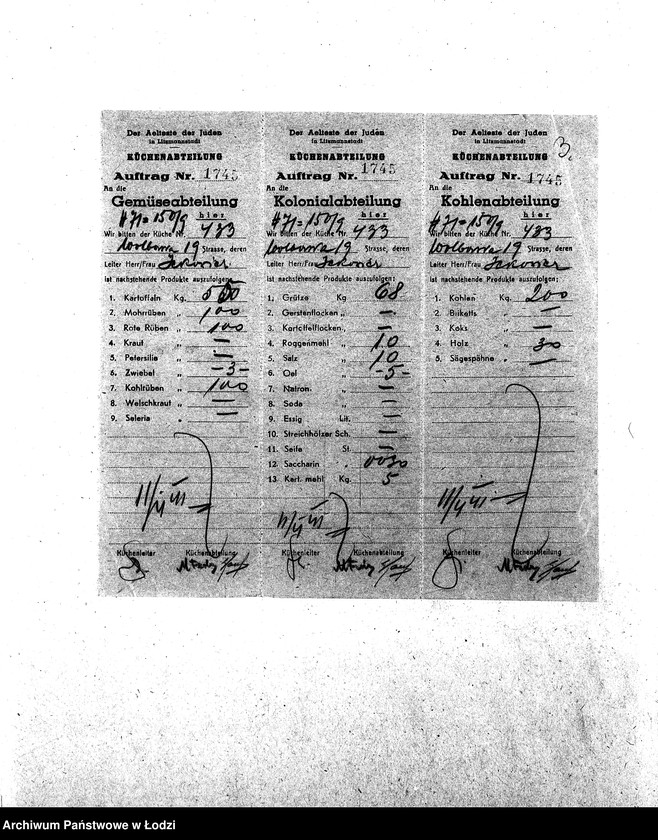 3.
Der Aelteste der Juden
in Litzmannstadt
KÜCHENABTEILUNG
Auftrag Nr. 1745
An die
Gemüseabteilung
hier
Wir bitten der Küche Nr. 483
19 Strasse, deren
Leiter Herr/Frau
ist nachstehende Produkte auszufolgen:
1. Kartoffeln Kg.
2. Mohrrüben „ 100
3. Rote Rüben „ 100
4. Kraut „ —
5. Petersilie „ —
6. Zwiebel „ —3—
7. Kohlrüben „ 100
8. Welschkraut „ —
9. Seleria „ —
Küchenleiter Küchenabteilung
Der Aelteste der Juden
in Litzmannstadt
KÜCHENABTEILUNG
Auftrag Nr. 1745
An die
Kolonialabteilung
hier
Wir bitten der Küche Nr. 433
19 Strasse, deren
Leiter Herr/Frau
ist nachstehende Produkte auszufolgen:
1. Grütze Kg 68
2. Gerstenflocken „ —
3. Kartoffelflocken „ —
4. Roggenmehl „ 10
5. Salz „ 10
6. Oel „ -5-
7. Natron „ —
8. Soda „ —
9. Essig Lit. —
10. Streichhölzer Sch. —
11. Seife St. —
12. Saccharin „
13. Kart. mehl Kg. 5
Küchenleiter Küchenabteilung
Der Aelteste der Juden
in Litzmannstadt
KÜCHENABTEILUNG
Auftrag Nr. 1745
An die
Kohlenabteilung
hier
Wir bitten der Küche Nr. 483
19 Strasse, deren
Leiter Herr/Frau
ist nachstehende Produkte auszufolgen:
1. Kohlen Kg. 200
2. Briketts „ —
3. Koks „ —
4. Holz „ 30
5. Sägespähne „ —
Küchenleiter Küchenabteilung
Archiwum Państwowe w Łodzi